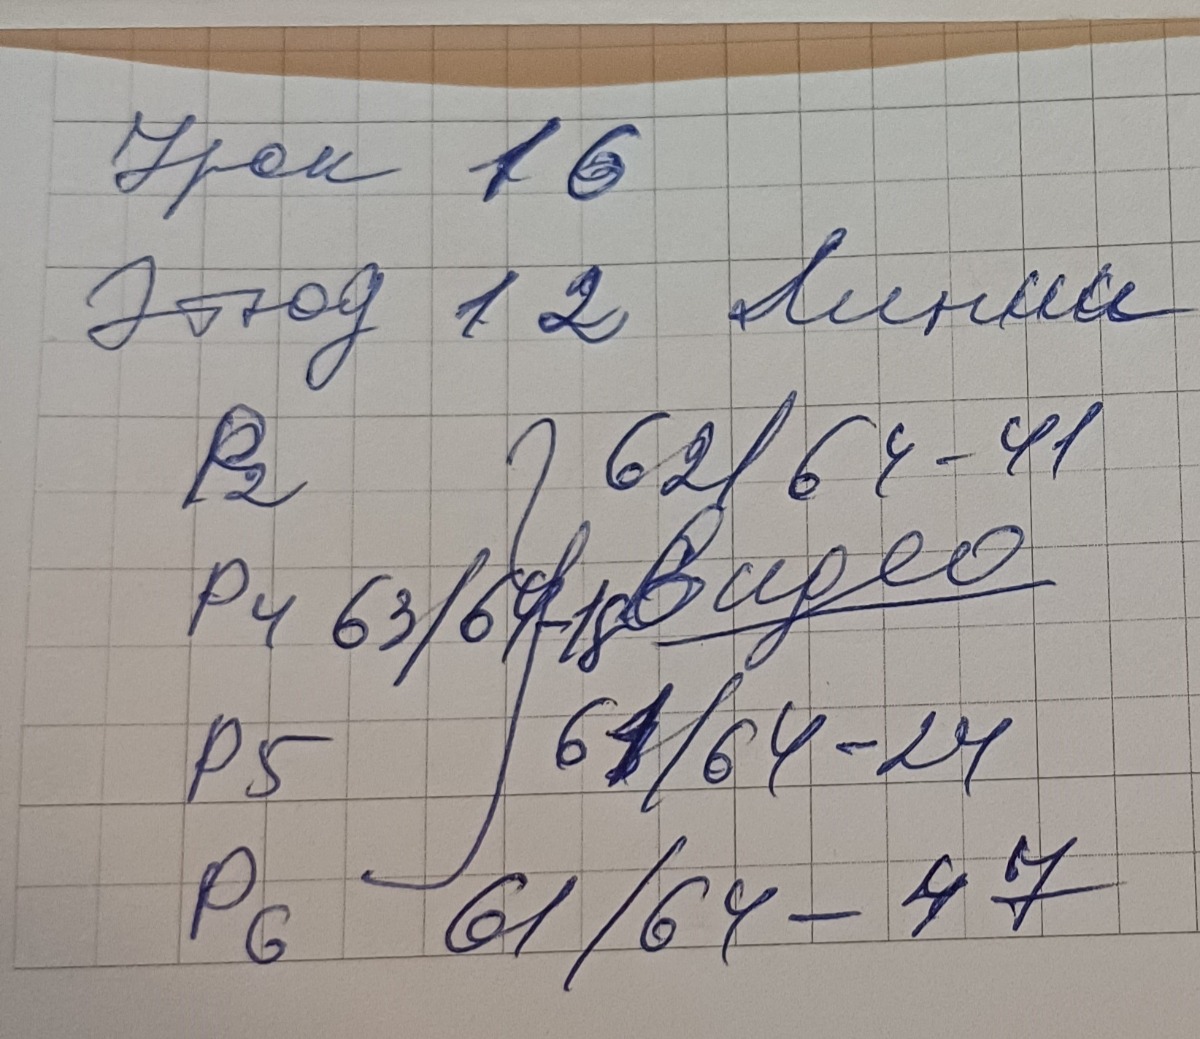 Урок 16
Этюд 12 Линии
P2 62/64-41
P4 63/64-18 Видео
P5 61/64-24
P6 61/64-47